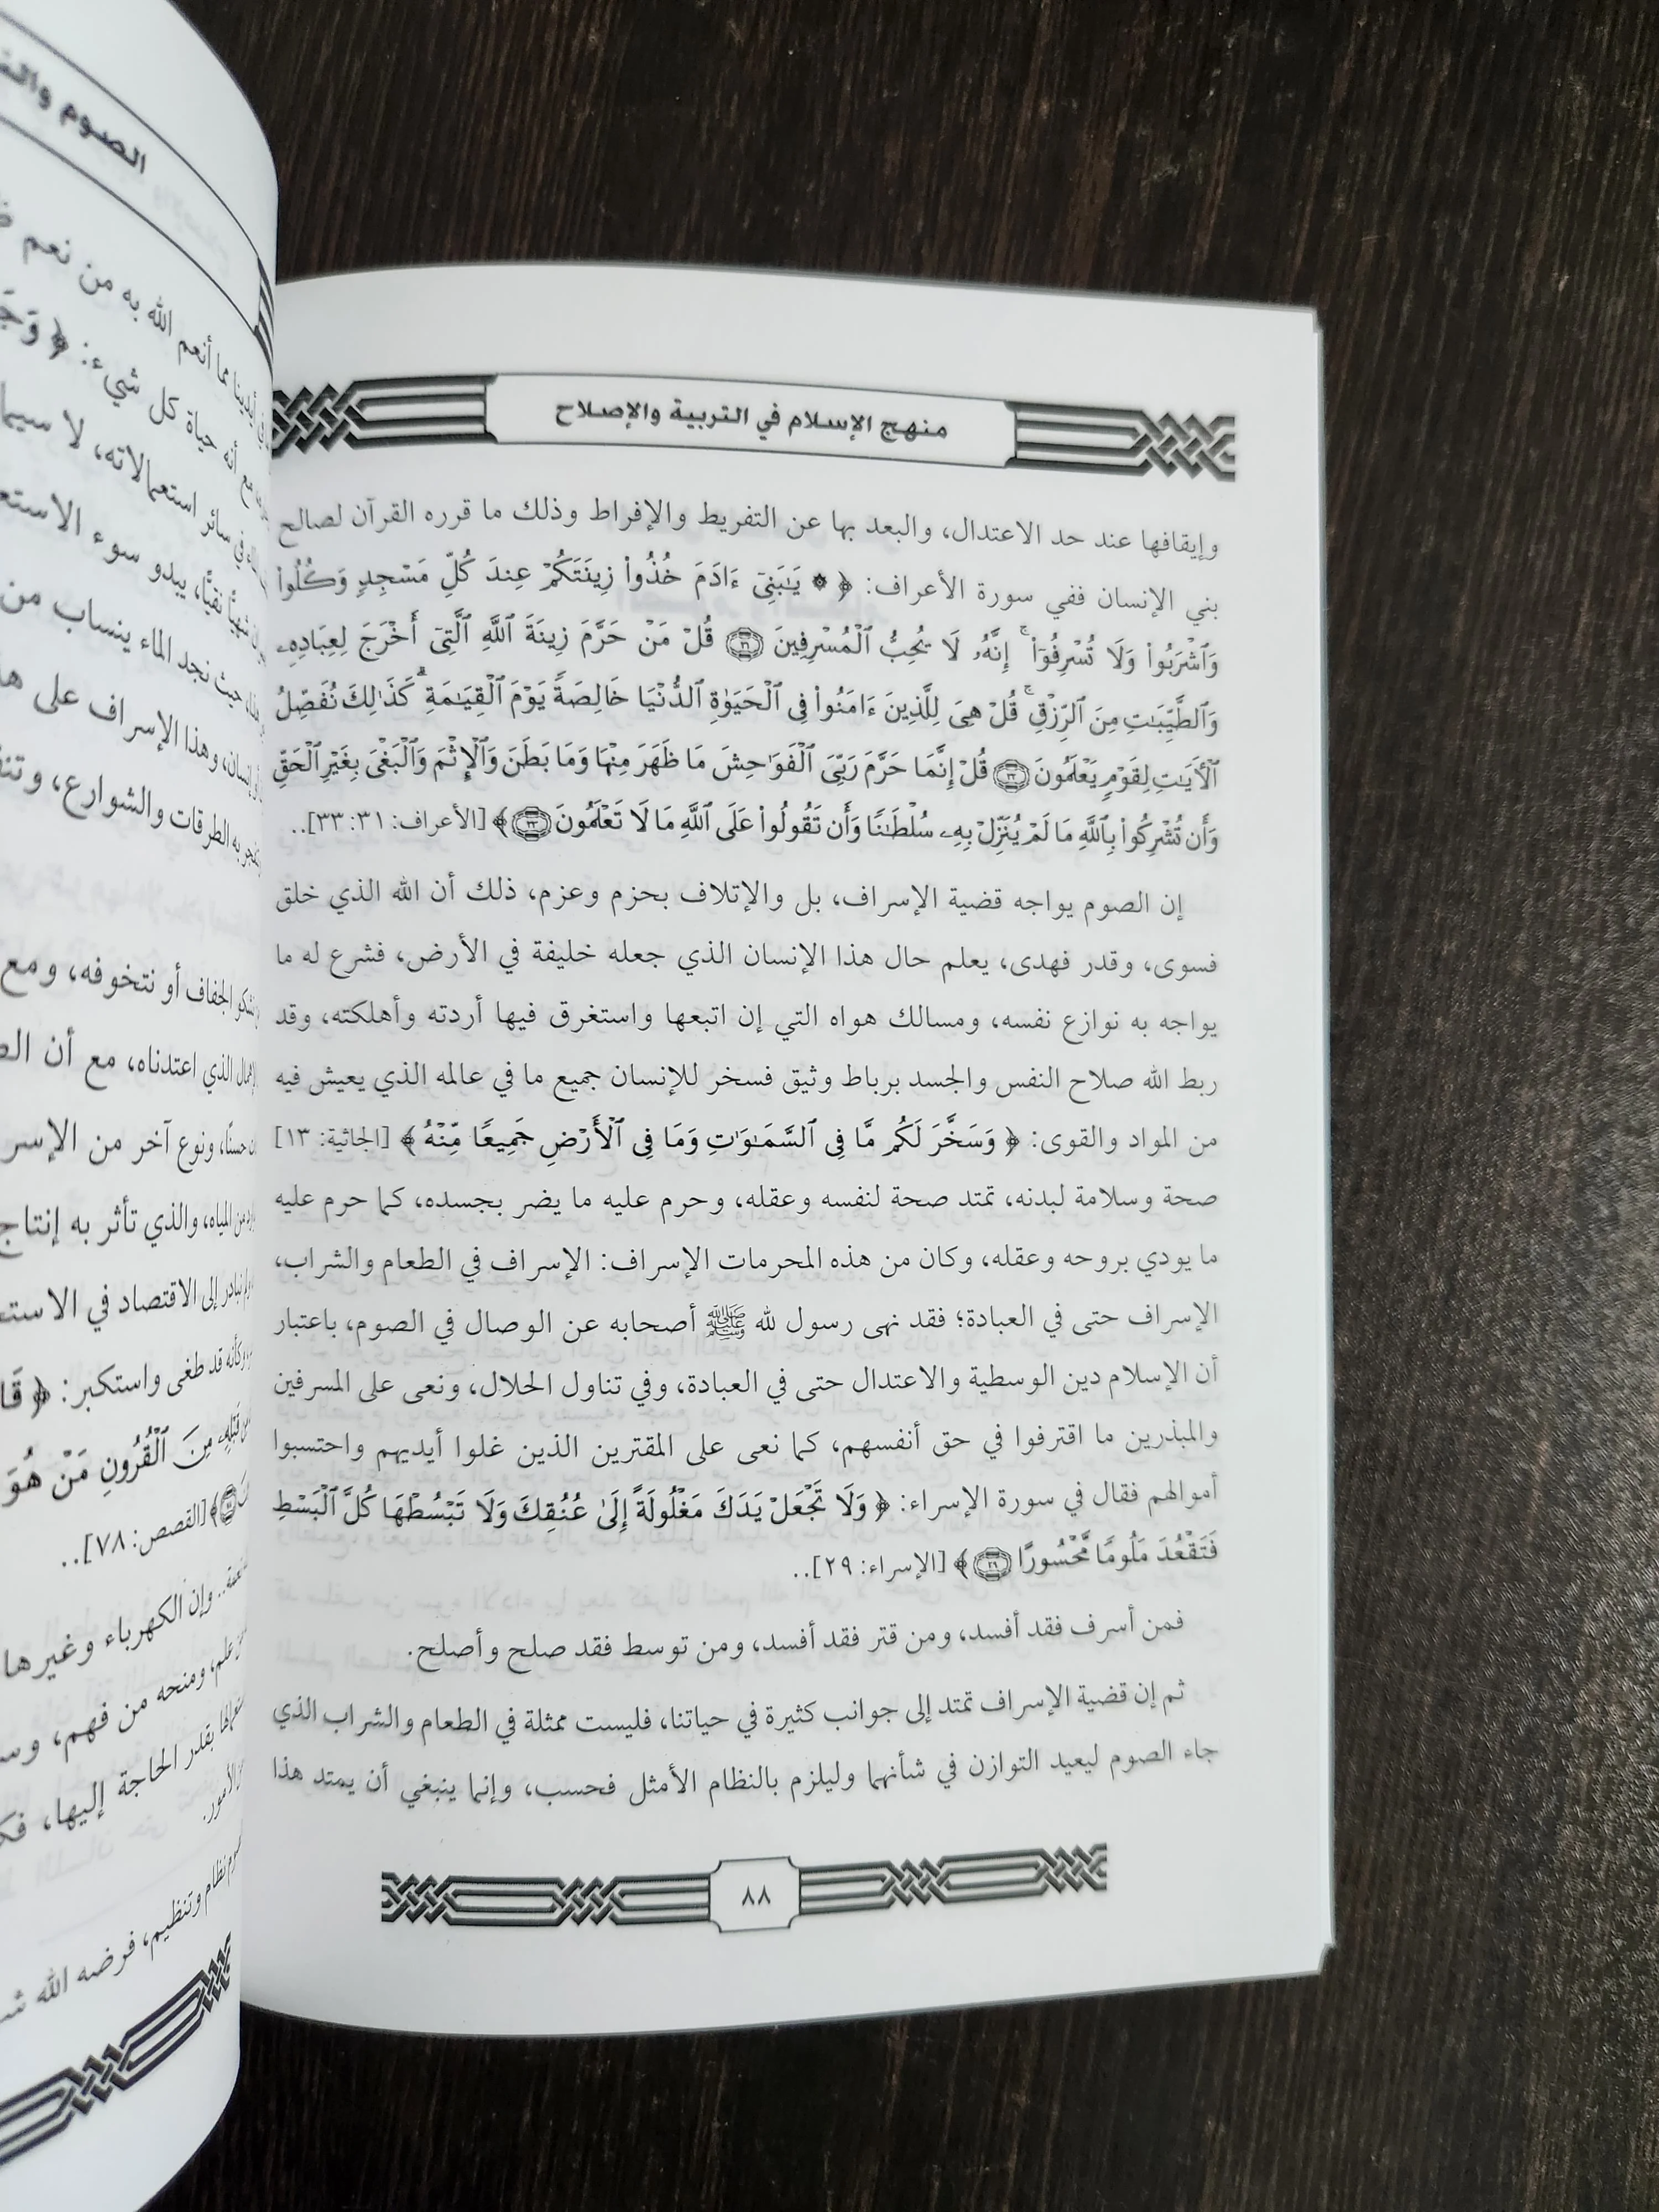 منهج الإسلام في التربية والإصلاح
وإيقافها عند حد الاعتدال، والبعد بها عن التفريط والإفراط وذلك ما قرره القرآن لصالح
بني الإنسان ففي سورة الأعراف: ﴿ ۞ يَـٰبَنِىٓ ءَادَمَ خُذُوا۟ زِينَتَكُمْ عِندَ كُلِّ مَسْجِدٍ وَكُلُوا۟
وَٱشْرَبُوا۟ وَلَا تُسْرِفُوٓا۟ ۚ إِنَّهُۥ لَا يُحِبُّ ٱلْمُسْرِفِينَ ٣١ قُلْ مَنْ حَرَّمَ زِينَةَ ٱللَّهِ ٱلَّتِىٓ أَخْرَجَ لِعِبَادِهِۦ
وَٱلطَّيِّبَـٰتِ مِنَ ٱلرِّزْقِ ۚ قُلْ هِىَ لِلَّذِينَ ءَامَنُوا۟ فِى ٱلْحَيَوٰةِ ٱلدُّنْيَا خَالِصَةً يَوْمَ ٱلْقِيَـٰمَةِ ۗ كَذَٰلِكَ نُفَصِّلُ
ٱلْـَٔايَـٰتِ لِقَوْمٍ يَعْلَمُونَ ٣٢ قُلْ إِنَّمَا حَرَّمَ رَبِّىَ ٱلْفَوَٰحِشَ مَا ظَهَرَ مِنْهَا وَمَا بَطَنَ وَٱلْإِثْمَ وَٱلْبَغْىَ بِغَيْرِ ٱلْحَقِّ
وَأَن تُشْرِكُوا۟ بِٱللَّهِ مَا لَمْ يُنَزِّلْ بِهِۦ سُلْطَـٰنًا وَأَن تَقُولُوا۟ عَلَى ٱللَّهِ مَا لَا تَعْلَمُونَ ٣٣ ﴾ [الأعراف: ٣١: ٣٣]..
إن الصوم يواجه قضية الإسراف، بل والإتلاف بحزم وعزم، ذلك أن الله الذي خلق
فسوى، وقدر فهدى، يعلم حال هذا الإنسان الذي جعله خليفة في الأرض، فشرع له ما
يواجه به نوازع نفسه، ومسالك هواه التي إن اتبعها واستغرق فيها أردته وأهلكته، وقد
ربط الله صلاح النفس والجسد برباط وثيق فسخر للإنسان جميع ما في عالمه الذي يعيش فيه
من المواد والقوى: ﴿ وَسَخَّرَ لَكُم مَّا فِى ٱلسَّمَـٰوَٰتِ وَمَا فِى ٱلْأَرْضِ جَمِيعًا مِّنْهُ ﴾ [الجاثية: ١٣]
صحة وسلامة لبدنه، تمتد صحة لنفسه وعقله، وحرم عليه ما يضر بجسده، كما حرم عليه
ما يودي بروحه وعقله، وكان من هذه المحرمات الإسراف: الإسراف في الطعام والشراب،
الإسراف حتى في العبادة؛ فقد نهى رسول لله ﷺ أصحابه عن الوصال في الصوم، باعتبار
أن الإسلام دين الوسطية والاعتدال حتى في العبادة، وفي تناول الحلال، ونعى على المسرفين
والمبذرين ما اقترفوا في حق أنفسهم، كما نعى على المقترين الذين غلوا أيديهم واحتسبوا
أموالهم فقال في سورة الإسراء: ﴿ وَلَا تَجْعَلْ يَدَكَ مَغْلُولَةً إِلَىٰ عُنُقِكَ وَلَا تَبْسُطْهَا كُلَّ ٱلْبَسْطِ
فَتَقْعُدَ مَلُومًا مَّحْسُورًا ٢٩ ﴾ [الإسراء: ٢٩]..
فمن أسرف فقد أفسد، ومن قتر فقد أفسد، ومن توسط فقد صلح وأصلح.
ثم إن قضية الإسراف تمتد إلى جوانب كثيرة في حياتنا، فليست ممثلة في الطعام والشراب الذي
جاء الصوم ليعيد التوازن في شأنهما وليلزم بالنظام الأمثل فحسب، وإنما ينبغي أن يمتد هذا
٨٨
الصوم
مما أنعم الله به من نعم
أنه حياة كل شيء: ﴿
سائر استعمالاته، لا سيما
يبدو سوء
حيث نجد الماء ينساب من
وهذا الإسراف على
به الطرقات والشوارع،
الجفاف أو نتخوفه، ومع
الذي اعتدناه، مع أن
حسنًا، ونوع آخر من
المياه، والذي تأثر به إنتاج
نبادر إلى الاقتصاد في
وكأنه قد طغى واستكبر: ﴿
مِنَ ٱلْقُرُونِ مَنْ هُوَ
﴾ [القصص: ٧٨]..
وإن الكهرباء وغيرها
علم، ومنحه من فهم،
بقدر الحاجة إليها،
الأمور.
نظام وتنظيم، فرضه الله